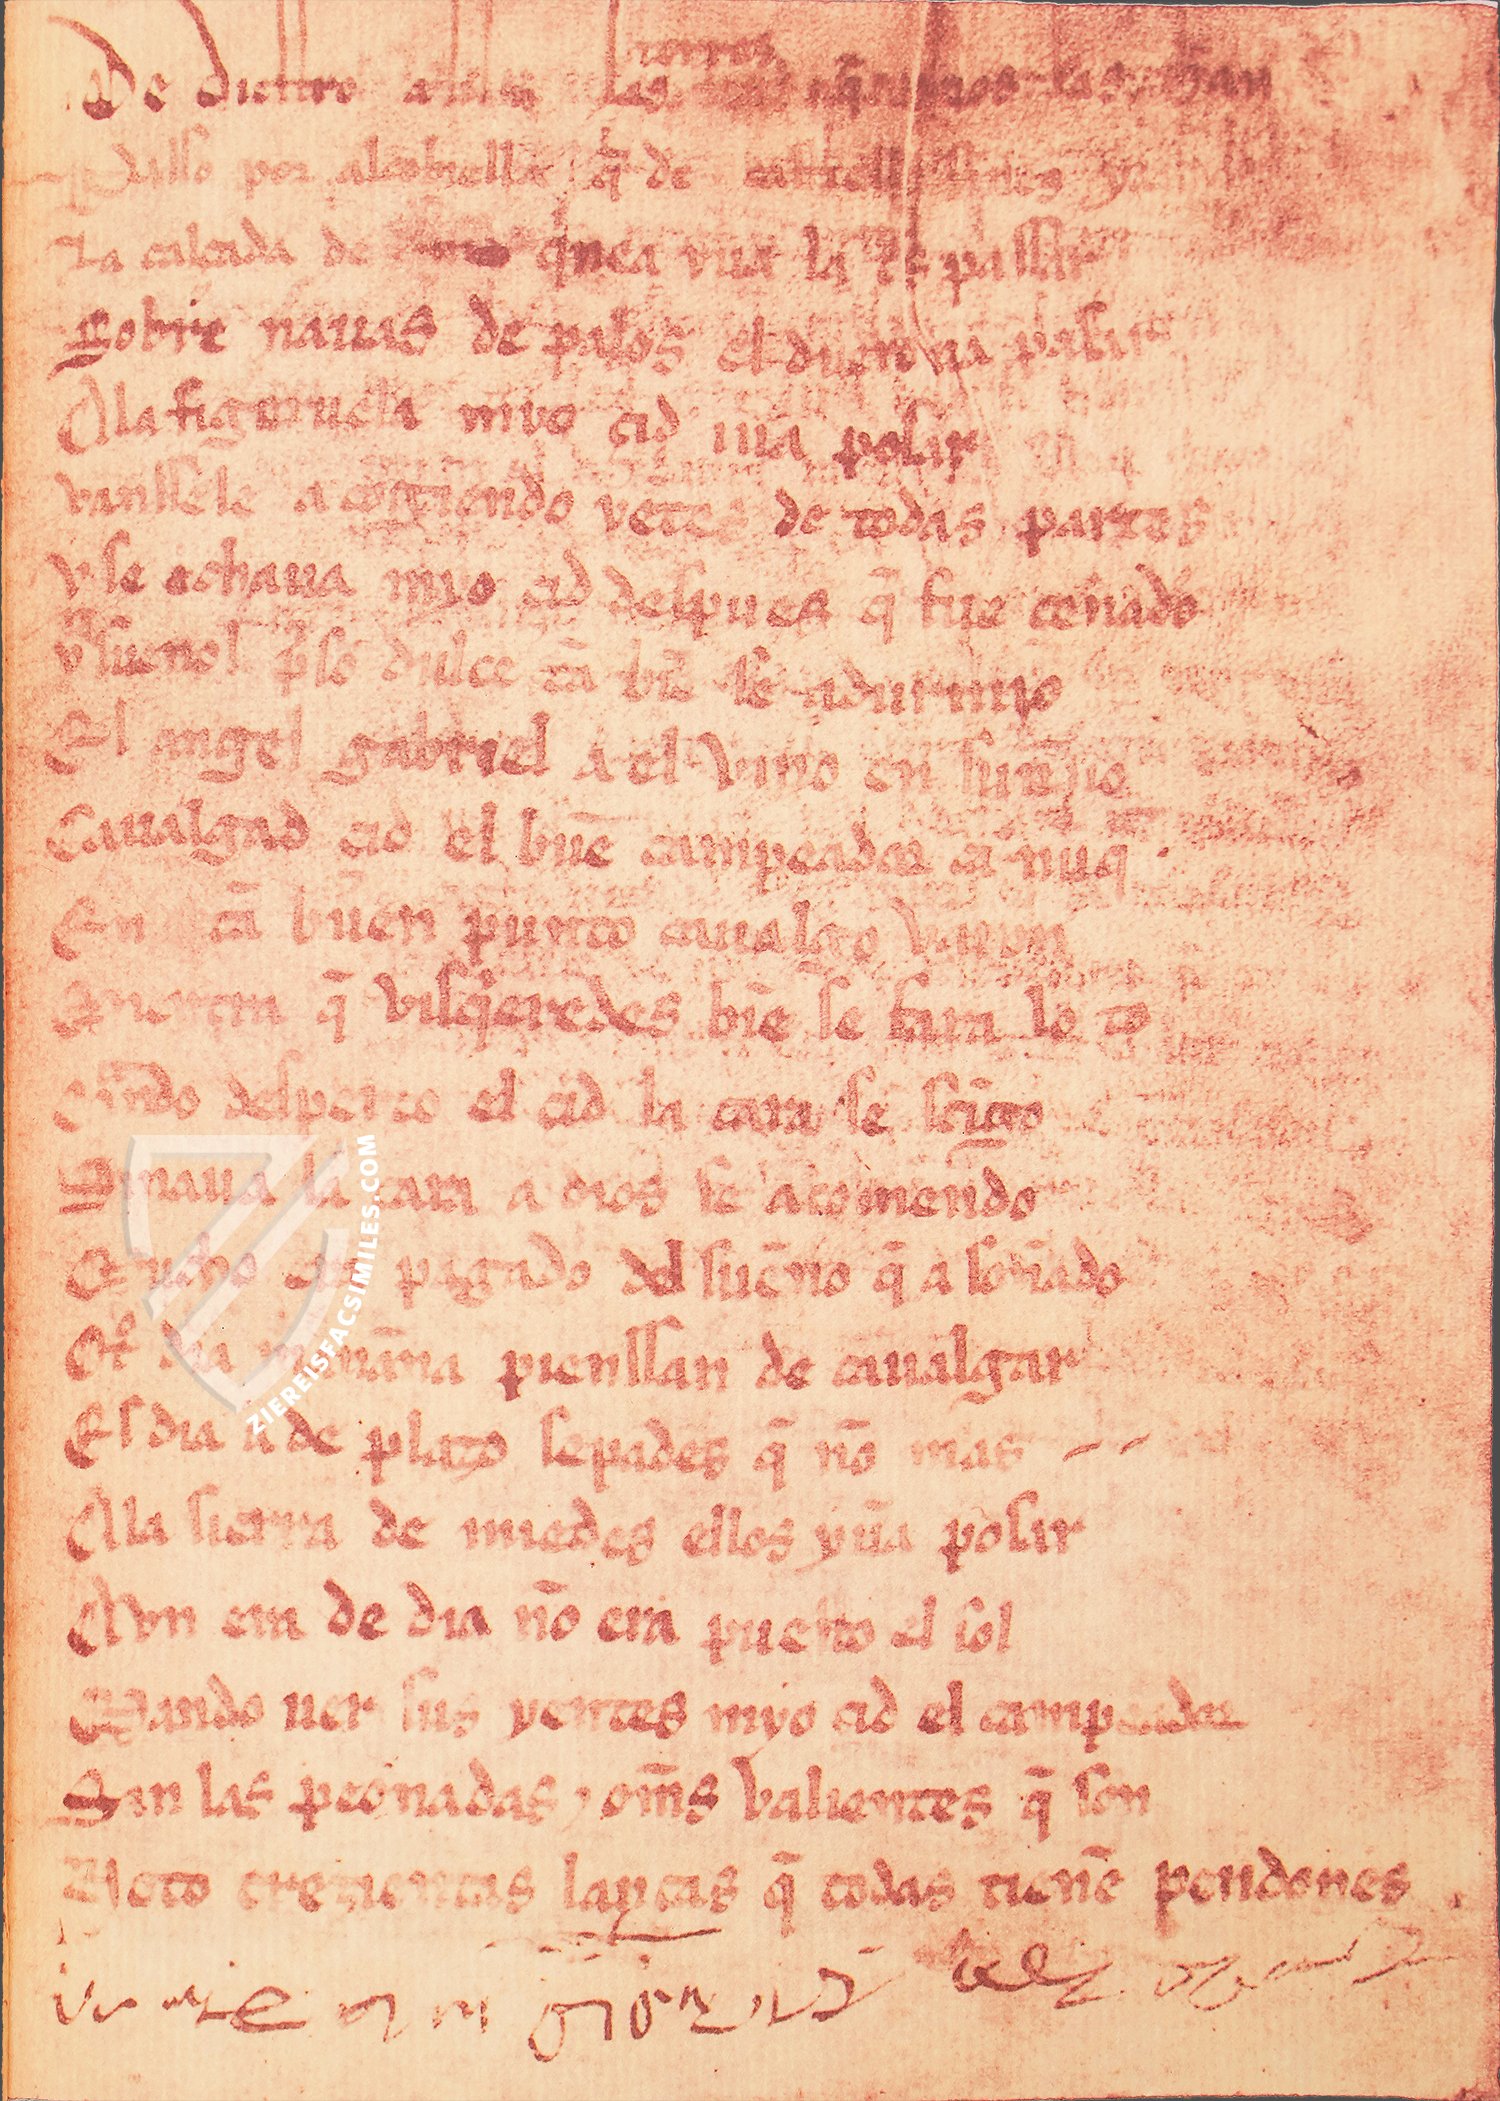 De diestro las torres q̃ moros las han
Passo por alcobiella q̃ de castiella fines ya
La calçada de quinea yua la tras passar
Sobre nauas de palos el duero ua pasar
Ala figeruela myo çid iua posar
vansele acogiendo yẽtes de todas partes
y se echaua myo çid despues q̃ fue çenado
vn suenol priso dulce tã biẽ se adurmio
El angel gabriel a el vino en sueño
Caualgad çid el buẽ campeador ca nũq̃
En tã buen punto caualgo varon
Mientra q̃ visq̃eredes biẽ se fara lo to
Q̃ndo desperto el çid la cara se sãtigo
Sinaua la cara a dios se acomendo
Mucho era pagado del sueño q̃ a soñado
Otº dia mañana pienssan de caualgar
Es dia a de plazo sepades q̃ nõ mas
Ala sierra de miedes ellos yuã posar
Avn era de dia nõ era puesto el sol
Mando uer sus yentes myo çid el campeador
Sin las peonadas y omẽs valientes q̃ son
Noto trezientas lanças q̃ todas tienẽ pendones
ZIEREISFACSIMILES.COM